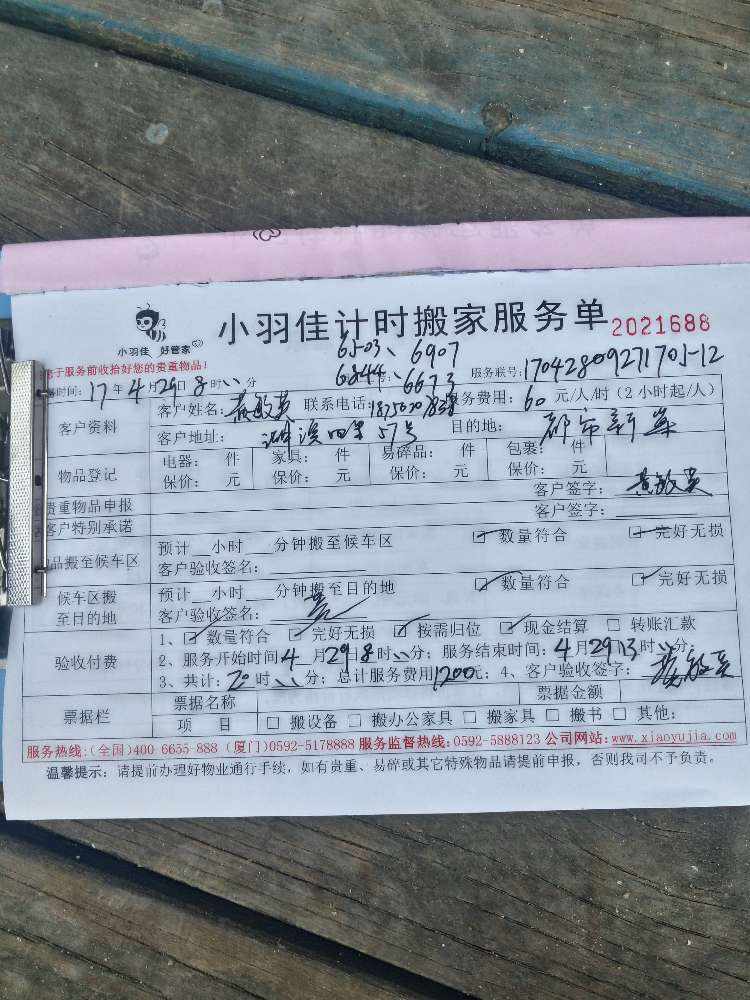 小羽佳计时搬家服务单 2021688
小羽佳 好管家
于服务前收拾好您的贵重物品!
6503、6907
6844、6673
服务联号:
时间: 17年4月29日8时〃分
客户资料
客户姓名: 黄敏英 联系电话: 服务费用: 60元/人/时(2小时起/人)
客户地址: 57号 目的地: 都市新
物品登记
电器: 件 家具: 件 易碎品: 件 包裹: 件
保价: 元 保价: 元 保价: 元 保价: 元
贵重物品申报 客户签字: 黄敏英
客户特别承诺 客户签字:
品搬至候车区
预计__小时___分钟搬至候车区 ☑数量符合 ☑完好无损
客户验收签名:
候车区搬至目的地
预计__小时___分钟搬至目的地 ☑数量符合 ☑完好无损
客户验收签名: 黄
验收付费
1、☑数量符合 ☑完好无损 ☑按需归位 ☑现金结算 □转账汇款
2、服务开始时间4月29日8时〃分; 服务结束时间: 4月29日13时〃分;
3、共计: 20时〃分; 总计服务费用1200元; 4、客户验收签字: 黄敏英
票据栏
票据名称 票据金额
项 目 □搬设备 □搬办公家具 □搬家具 □搬书 □其他:
服务热线:(全国)400-6655-888 (厦门)0592-5178888 服务监督热线:0592-5888123 公司网站:www.xiaoyujia.com
温馨提示: 请提前办理好物业通行手续,如有贵重、易碎或其它特殊物品请提前申报,否则我司不予负责。